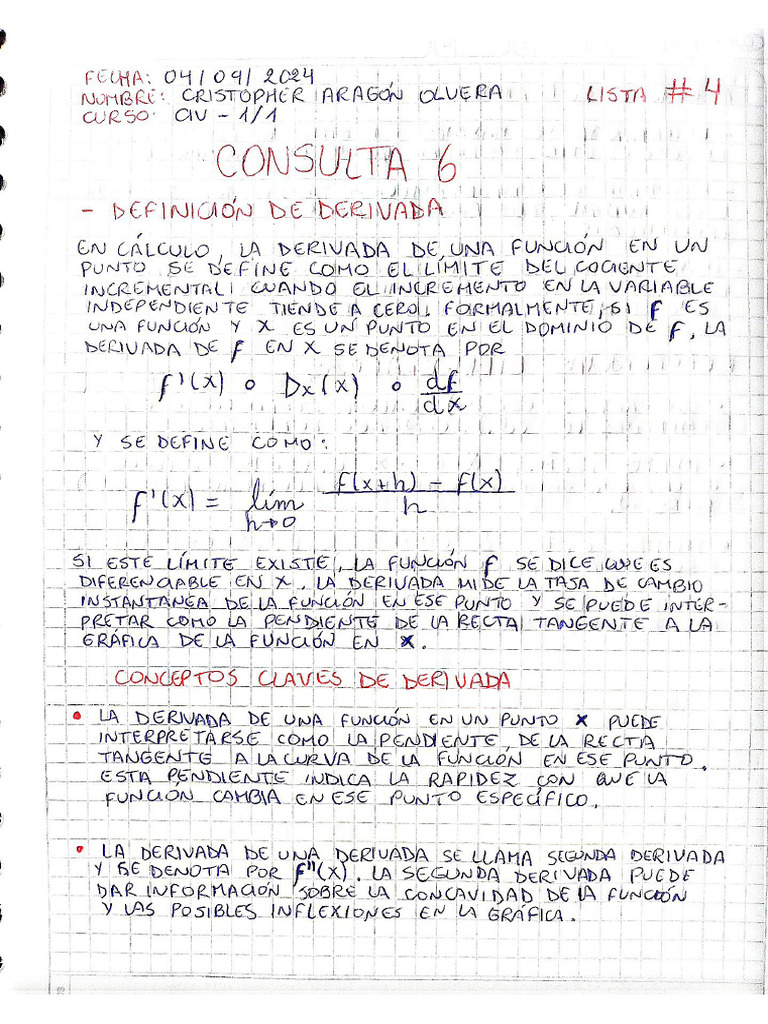 FECHA: 04/09/2024
NOMBRE: CRISTOPHER ARAGÓN OLVERA LISTA # 4
CURSO: CIV - 1/1
CONSULTA 6
- DEFINICIÓN DE DERIVADA
EN CÁLCULO, LA DERIVADA DE UNA FUNCIÓN EN UN
PUNTO SE DEFINE COMO EL LÍMITE DEL COCIENTE
INCREMENTAL CUANDO EL INCREMENTO EN LA VARIABLE
INDEPENDIENTE TIENDE A CERO, FORMALMENTE, SI f ES
UNA FUNCIÓN Y X ES UN PUNTO EN EL DOMINIO DE f, LA
DERIVADA DE f EN X SE DENOTA POR
f'(x) o Dx(x) o df/dx
Y SE DEFINE COMO:
f'(x) = lím h→0 f(x+h) - f(x) / h
SI ESTE LÍMITE EXISTE, LA FUNCIÓN f SE DICE QUE ES
DIFERENCIABLE EN X. LA DERIVADA MIDE LA TASA DE CAMBIO
INSTANTÁNEA DE LA FUNCIÓN EN ESE PUNTO Y SE PUEDE INTER-
PRETAR COMO LA PENDIENTE DE LA RECTA TANGENTE A LA
GRÁFICA DE LA FUNCIÓN EN X.
CONCEPTOS CLAVES DE DERIVADA
• LA DERIVADA DE UNA FUNCIÓN EN UN PUNTO X PUEDE
INTERPRETARSE COMO LA PENDIENTE, DE LA RECTA
TANGENTE A LA CURVA DE LA FUNCIÓN EN ESE PUNTO.
ESTA PENDIENTE INDICA LA RAPIDEZ CON QUE LA
FUNCIÓN CAMBIA EN ESE PUNTO ESPECÍFICO.
• LA DERIVADA DE UNA DERIVADA SE LLAMA SEGUNDA DERIVADA
Y SE DENOTA POR f''(x). LA SEGUNDA DERIVADA PUEDE
DAR INFORMACIÓN SOBRE LA CONCAVIDAD DE LA FUNCIÓN
Y LAS POSIBLES INFLEXIONES EN LA GRÁFICA.